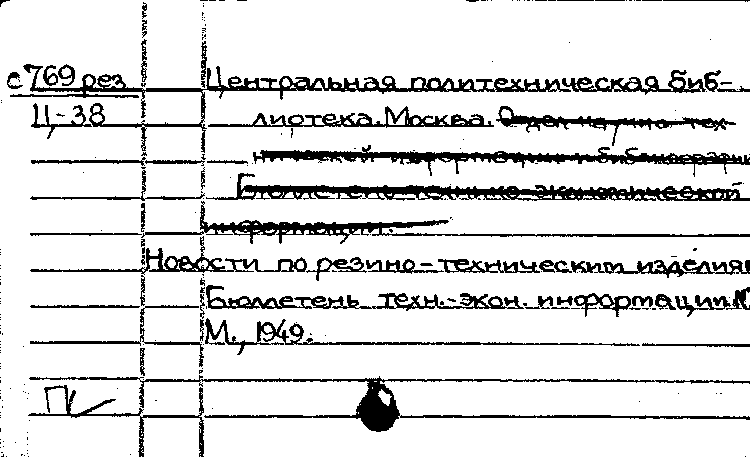 с 769 рез Центральная политехническая биб-
Ц-38 лиотека. Москва. Отдел научно тех
нической информации и библиографии
Бюллетень технико-экономической
информации.
Новости по резино-техническим изделиям
Бюллетень техн.-экон. информации №
М., 1949.